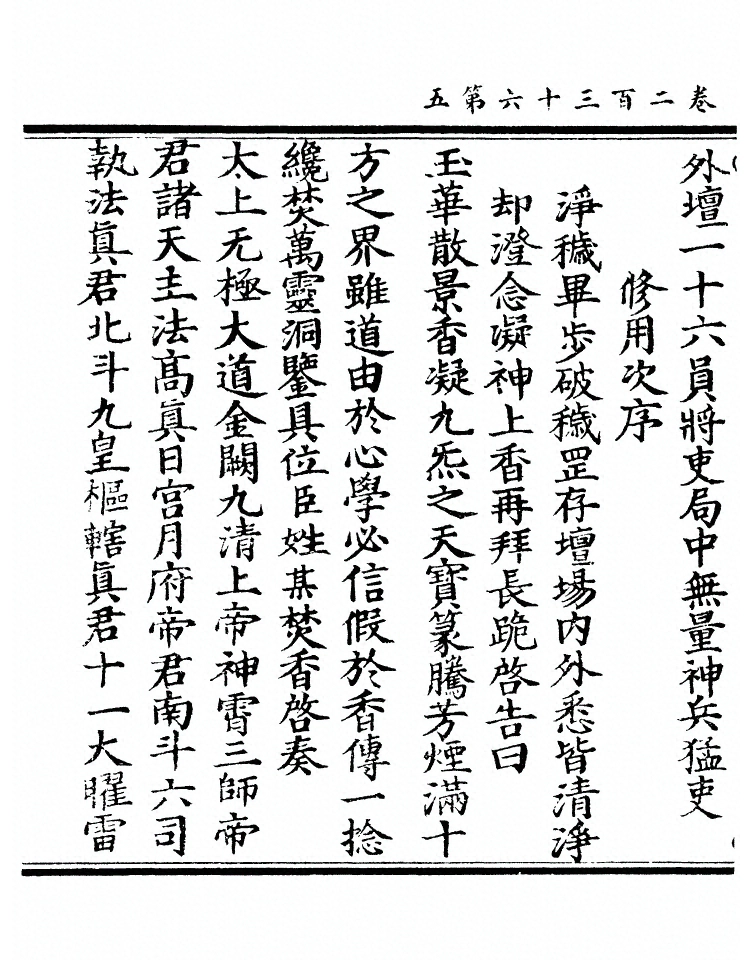 卷二百三十六第五
外壇一十六員將吏局中無量神兵猛吏
修用次序
淨穢畢步破穢罡存壇場內外悉皆清淨
却澄念凝神上香再拜長跪啓告曰
玉華散景香凝九炁之天寶篆騰芳煙滿十
方之界雖道由於心學必信假於香傳一捻
纔焚萬靈洞鑒具位臣姓某焚香啓奏
太上无極大道金闕九清上帝神霄三師帝
君諸天主法高眞日宮月府帝君南斗六司
執法眞君北斗九皇樞轄眞君十一大曜雷